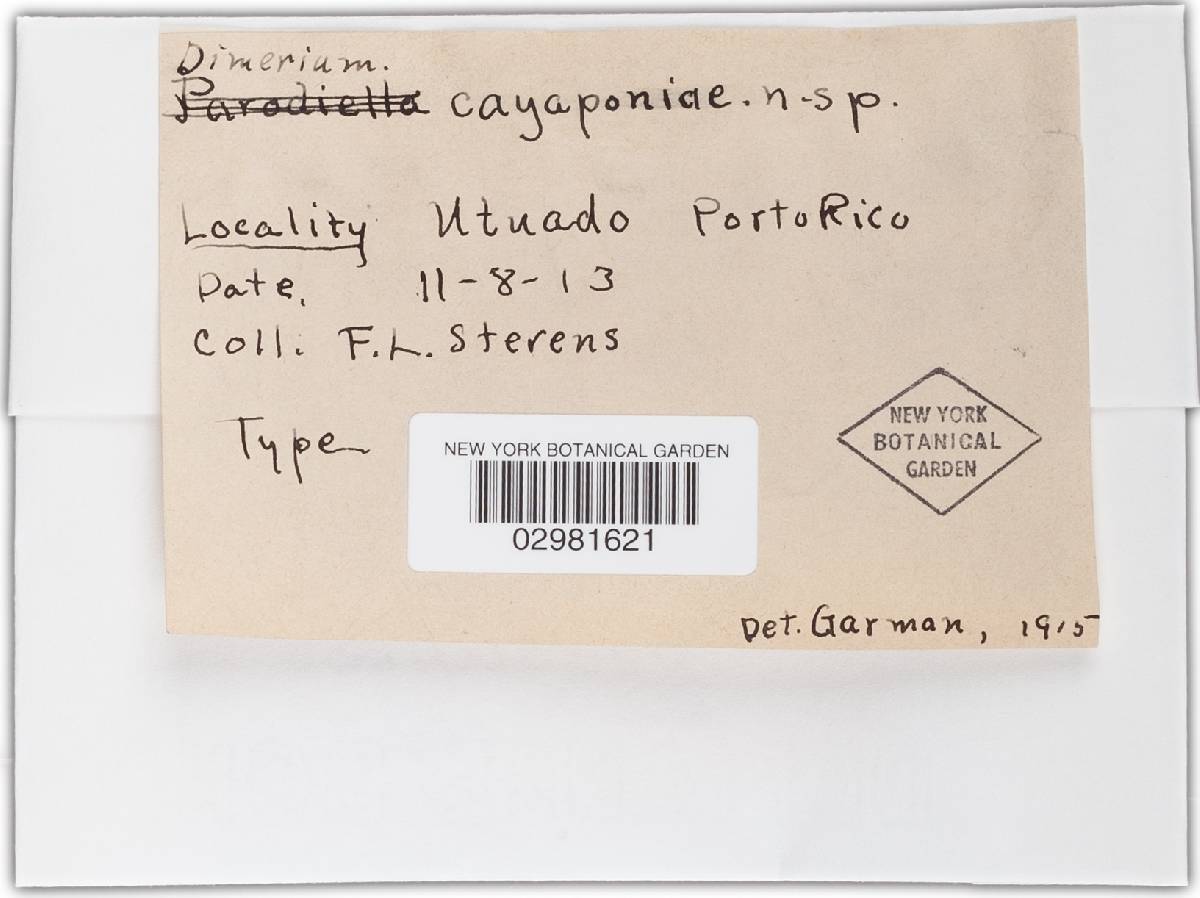 Dimerium.
Parodiella cayaponiae. n-sp.
Locality Utuado Porto Rico
Date, 11-8-13
Coll: F.L. Stevens
Type
NEW YORK BOTANICAL GARDEN
02981621
NEW YORK
BOTANICAL
GARDEN
Det. Garman, 1915